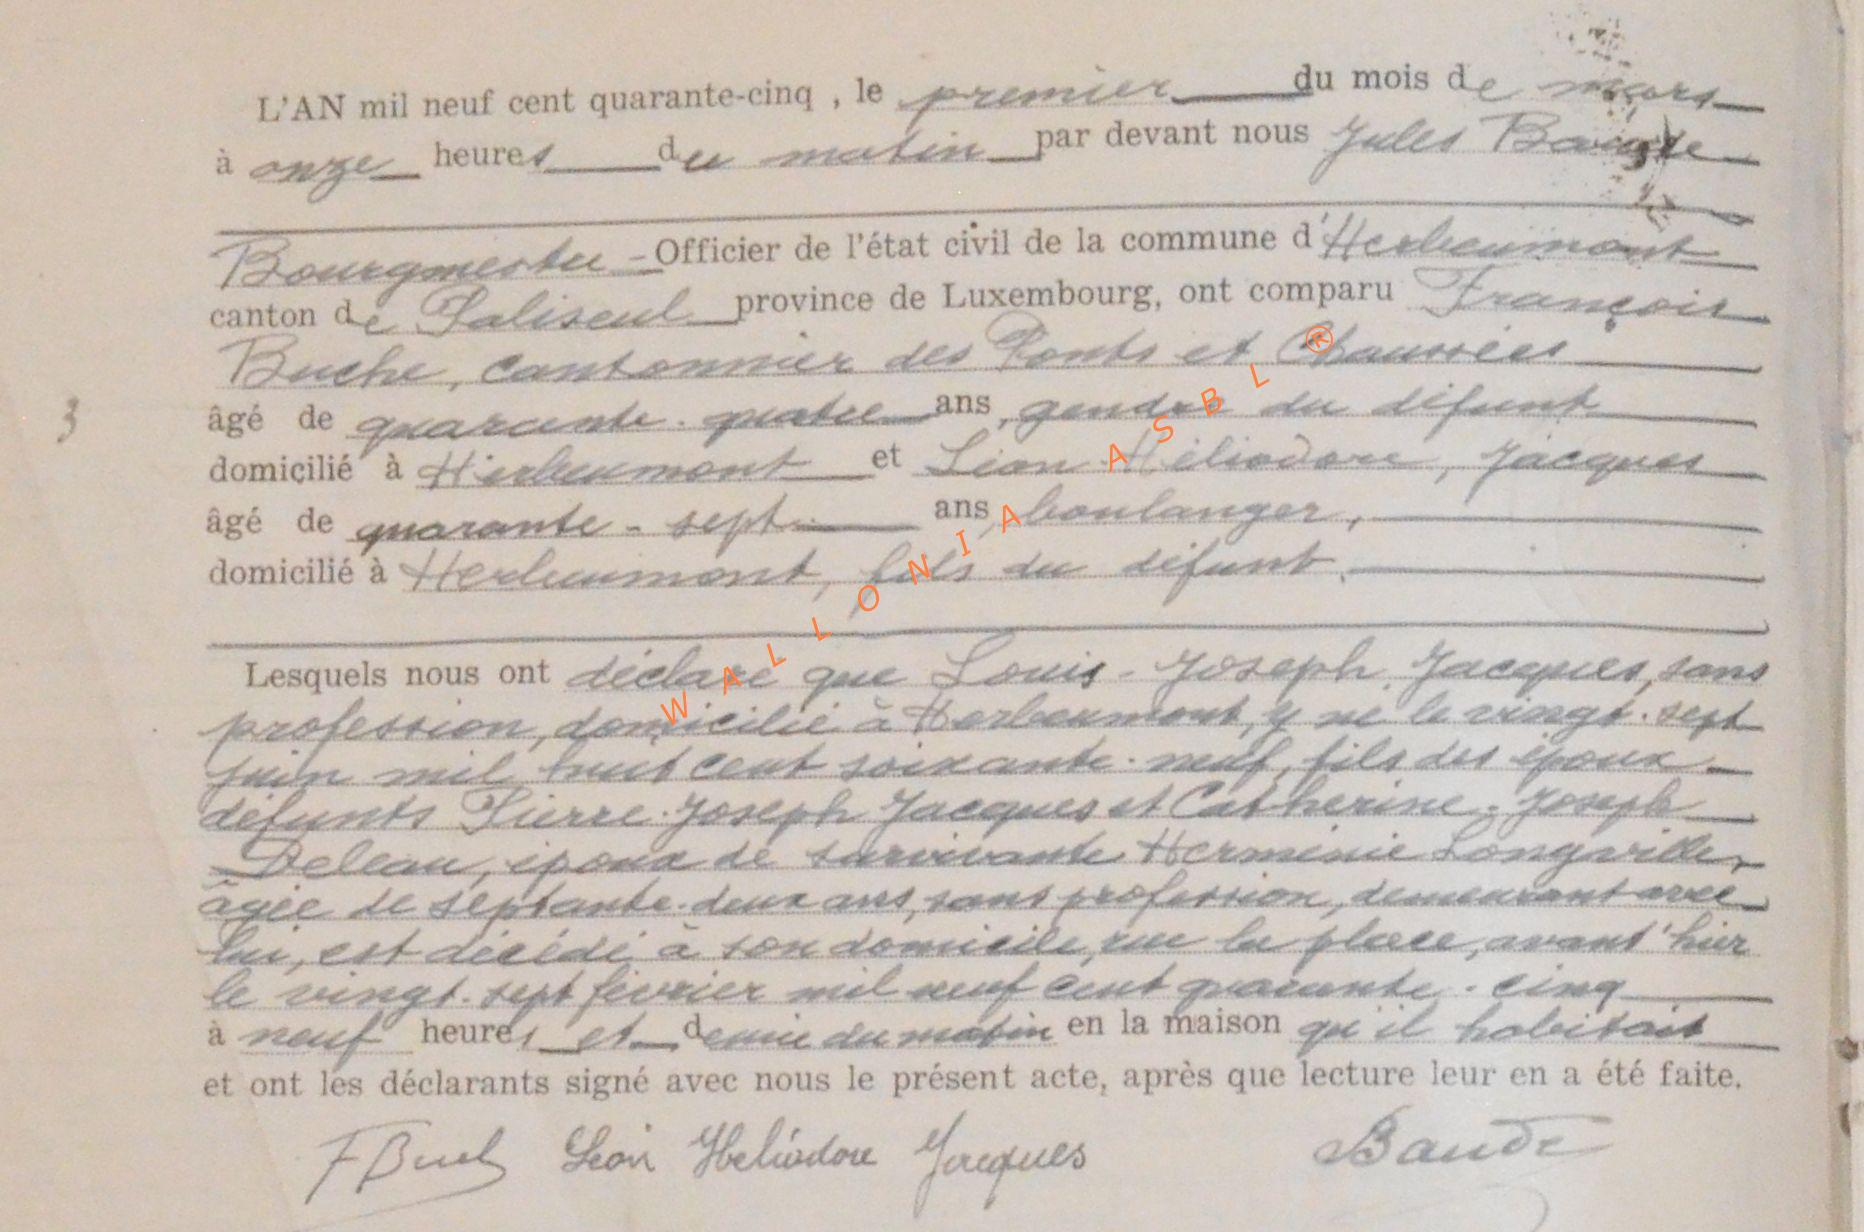 L'AN mil neuf cent quarante-cinq , le premier du mois de mars
à onze heures du matin par devant nous Jules Baude
Bourgmestre - Officier de l'état civil de la commune d'Herbeumont
canton de Paliseul province de Luxembourg, ont comparu François
Buche, cantonnier des Ponts et Chaussées
âgé de quarante-quatre ans, gendre du défunt
3
domicilié à Herbeumont et Léon Héliodore, Jacques
âgé de quarante-sept ans, boulanger,
domicilié à Herbeumont, fils du défunt.
Lesquels nous ont déclaré que Louis-Joseph Jacques, sans
profession, domicilié à Herbeumont, y né le vingt-sept
juin mil huit cent soixante-neuf, fils des époux
défunts Pierre-Joseph Jacques et Catherine-Joseph
Deleau, époux de survivante Herminie Longville,
âgée de septante-deux ans, sans profession, demeurant avec
lui, est décédé à son domicile, rue la place, avant'hier
le vingt-sept février mil neuf cent quarante-cinq
à neuf heures et demie du matin en la maison qu'il habitait
et ont les déclarants signé avec nous le présent acte, après que lecture leur en a été faite.
F Buch Léon Héliodore Jacques Baude
WALLONIA ASBL ®